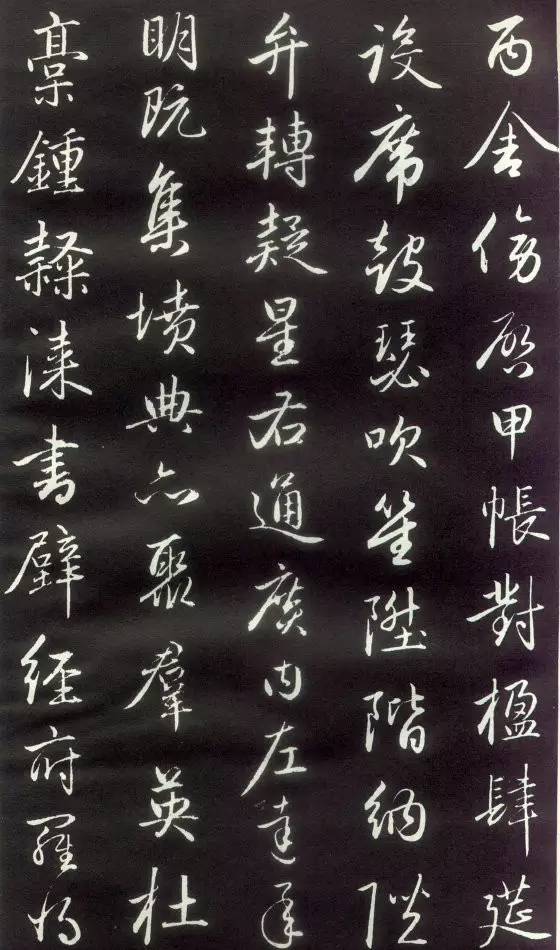 丙舍傍启甲帳對楹肆筵
設席鼓瑟吹笙陞階納陛
弁轉疑星右通廣内左達承
明既集墳典亦聚群英杜
稾鍾隸漆書壁經府羅将